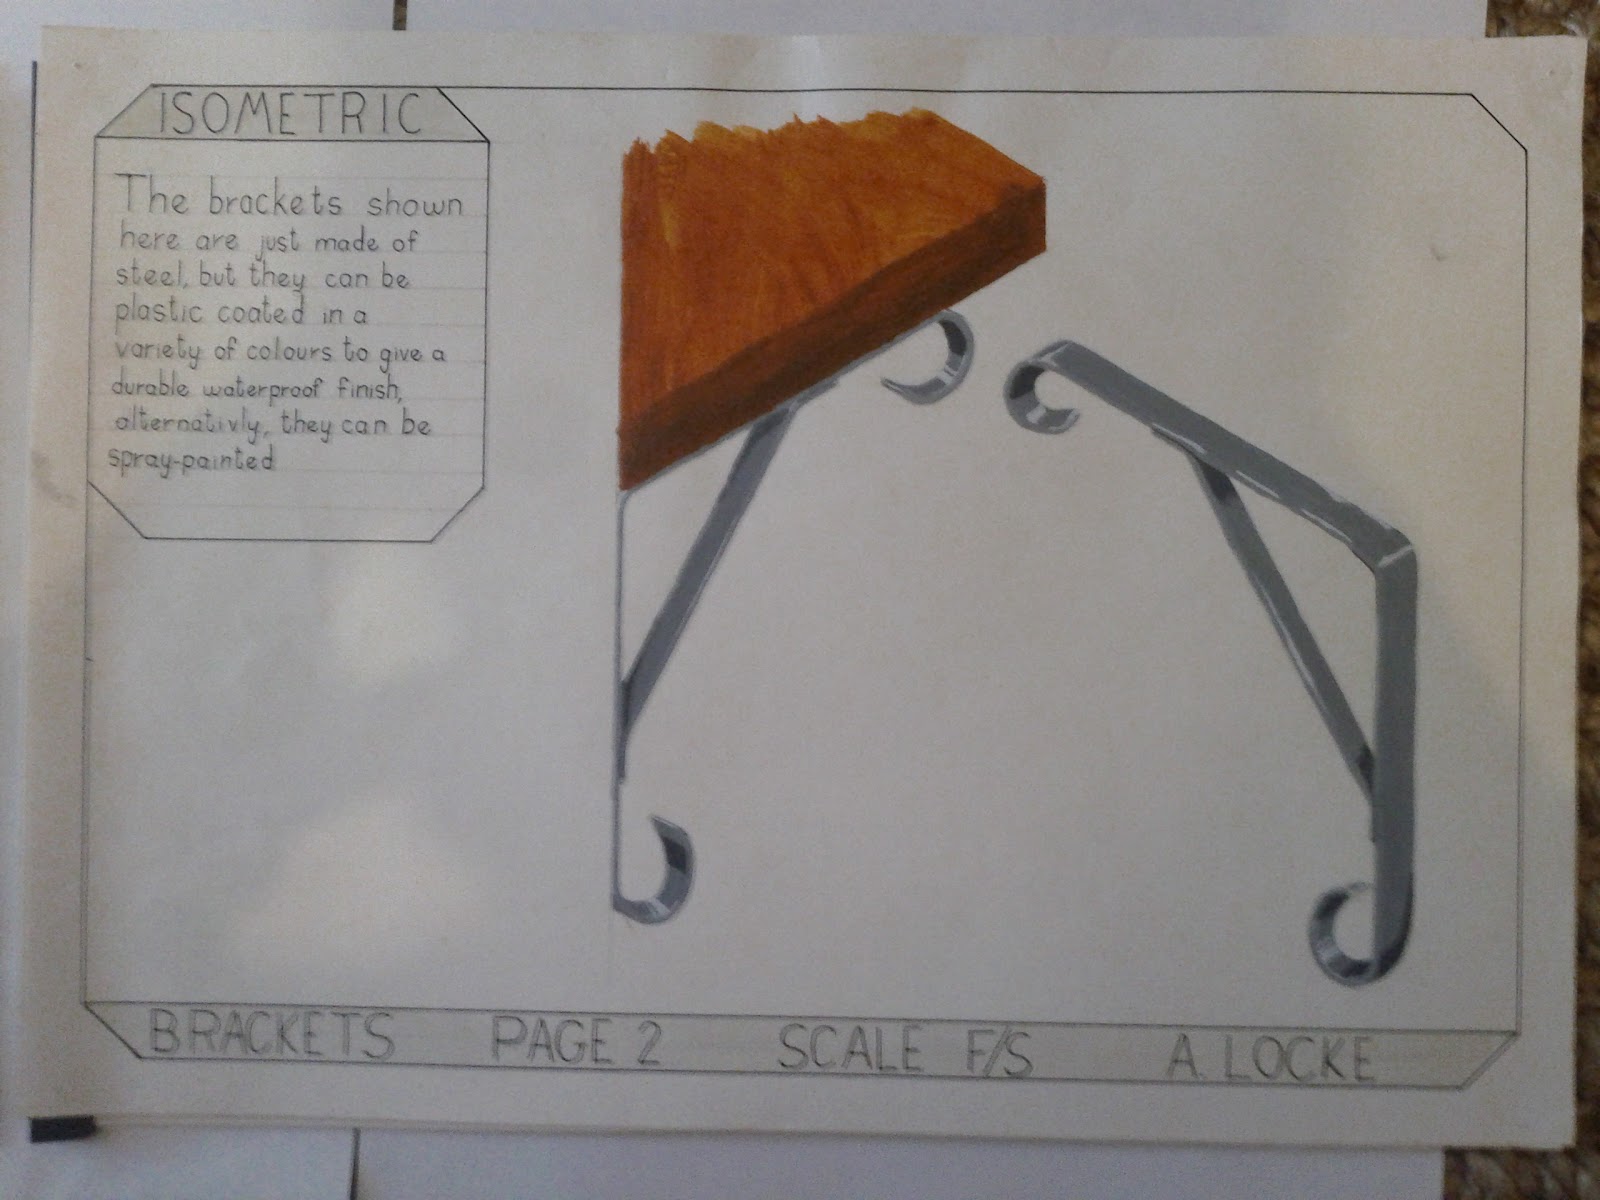 ISOMETRIC
The brackets shown
here are just made of
steel, but they can be
plastic coated in a
variety of colours to give a
durable waterproof finish,
alternativly, they can be
spray-painted
BRACKETS PAGE 2 SCALE F/S A. LOCKE